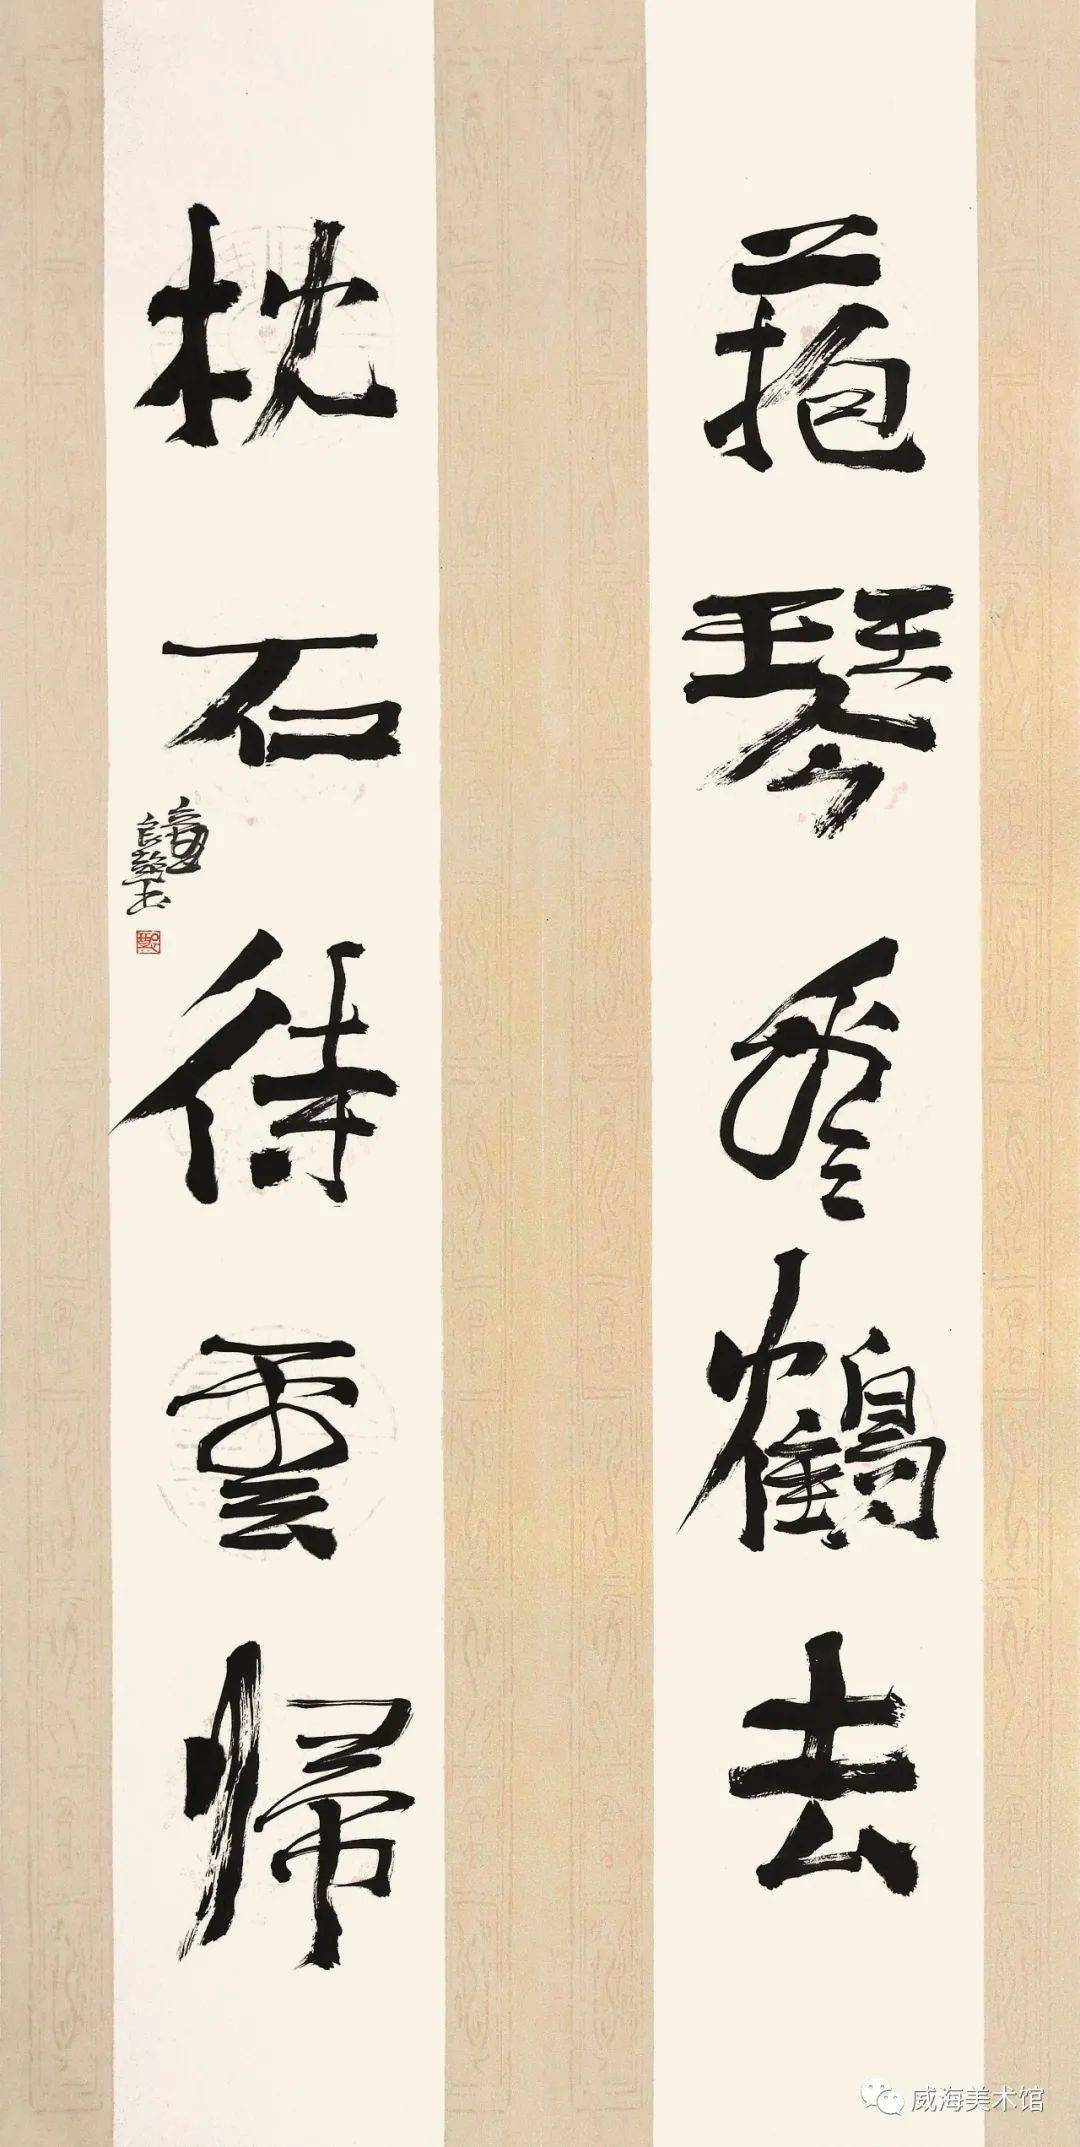 菢琴看鶴去
枕石待雲歸
威海美术馆